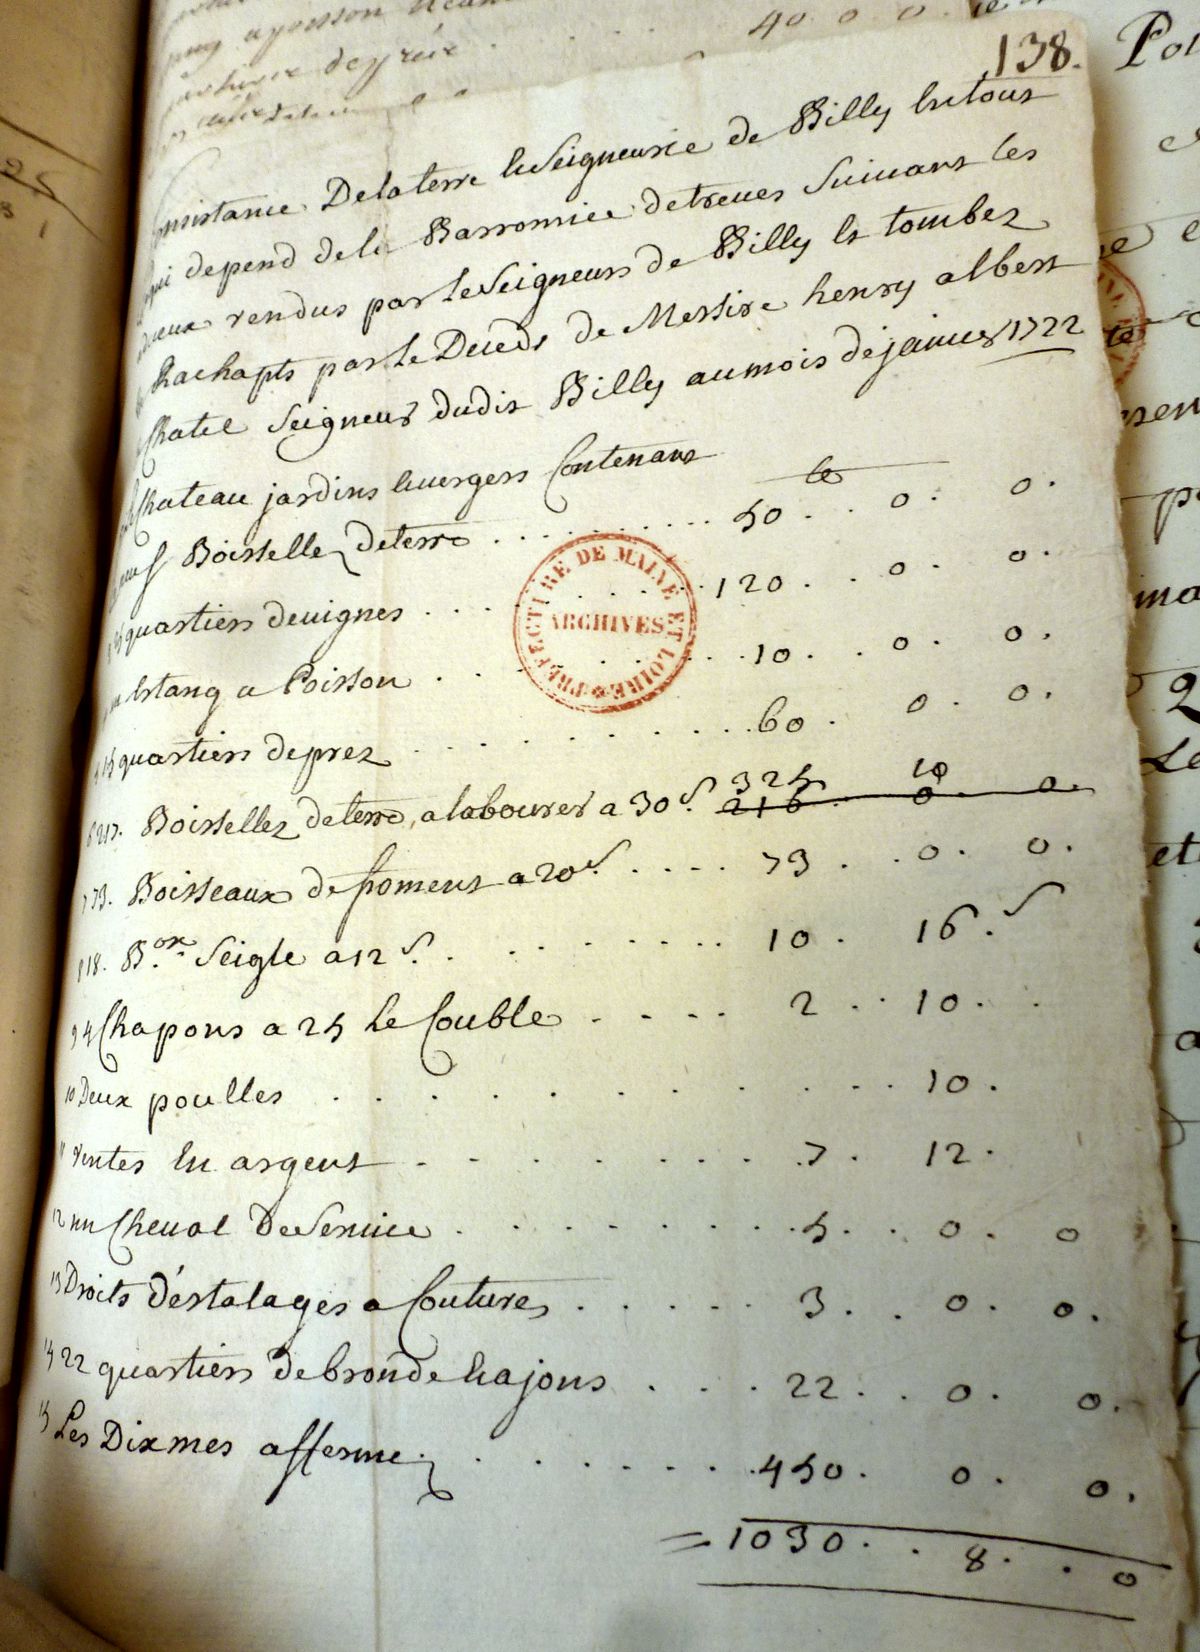 40 . 0 . 0 . 0
138.
Consistance De la terre & Seigneurie de Billy Entour
qui depend de la Barronnie de treues Suiuant les
adueux rendus par le Seigneurs de Billy Et tombez
Rachapts par le Deceds de Messire henry albert
Chatel Seigneur dudit Billy au mois de januier 1722
Chateau jardins & uergers Contenant
neuf Boisselleez de terre . . . 50 . . 0 . 0 .
quartiers de uignes . . . 120 . . 0 . 0 .
un Estang a Poisson . . . 10 . . 0 . 0 .
quartiers de prez . . . 60 . 0 . 0 .
6 217. Boissellez de terre a labourer a 30 s. 325 10
216 . 0 . 0 .
7 73. Boisseaux de froment a 20 s. . . . 73 . . 0 . 0 .
8 18. B.on Seigle a 12 s. . . . 10 . 16 . s
9 4 Chapons a 25 le Couble . . . 2 . . 10 . .
10 Deux poulles . . . 10 .
11 rentes En argent . . . 7 . 12 .
12 un Cheual De Seruice . . . 5 . . 0 . 0
13 Droits d'Estalages a Coutures . . . 3 . . 0 . 0 .
14 22 quartiers de brande & ajons . . . 22 . . 0 . 0 .
15 Les Dixmes affermeez . . . 450 . 0 . 0 .
= 1030 . . 8 . . 0
PREFECTURE DE MAINE ET LOIRE
ARCHIVES